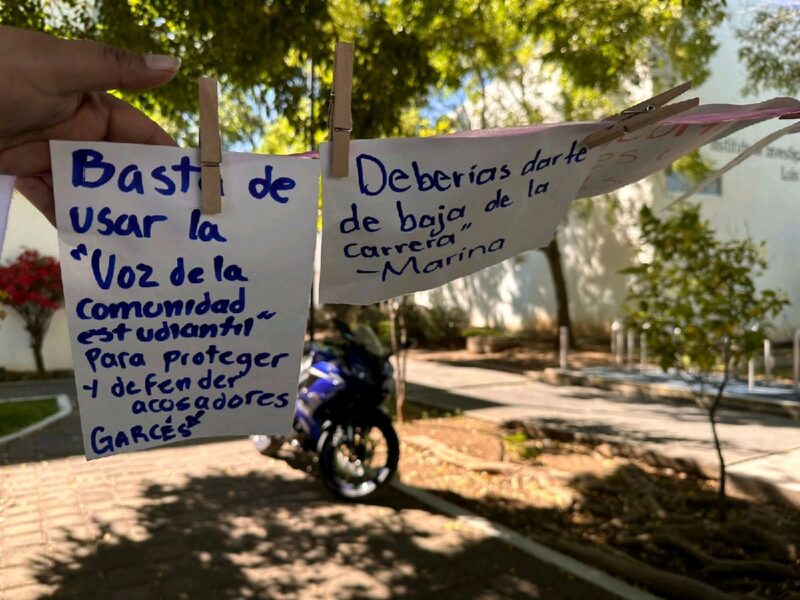 Basta de
usar la
"Voz de la
comunidad
estudiantil"
Para proteger
y defender
acosadores
GARCÉS
Deberías darte
de baja de la
carrera"
-Marina